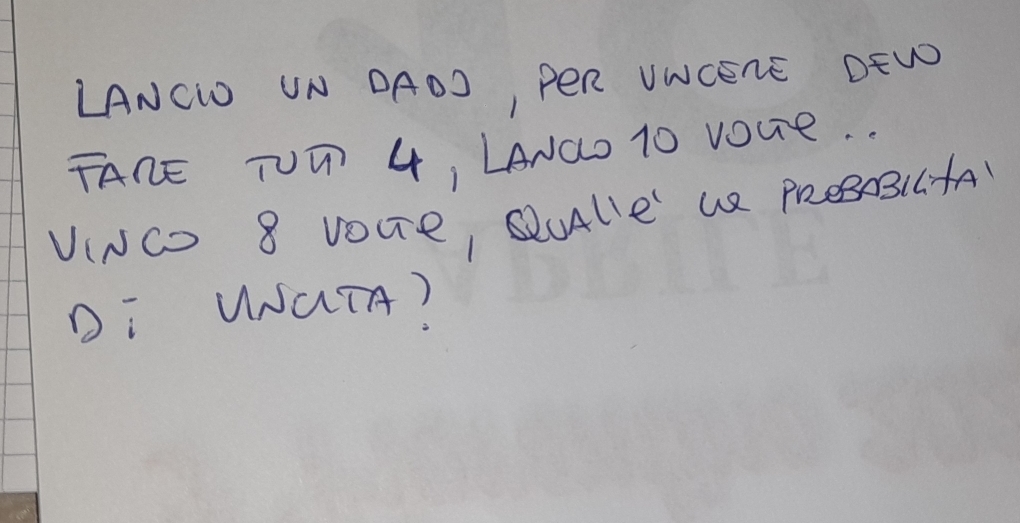 LANCIO UN DADO, PER VINCERE DEVO
FARE TUTTI 4, LANCIO 10 VOLTE..
VINCO 8 VOLTE, QUAL'E' LA PROBABILITA'
Di VINCITA?
APRILE